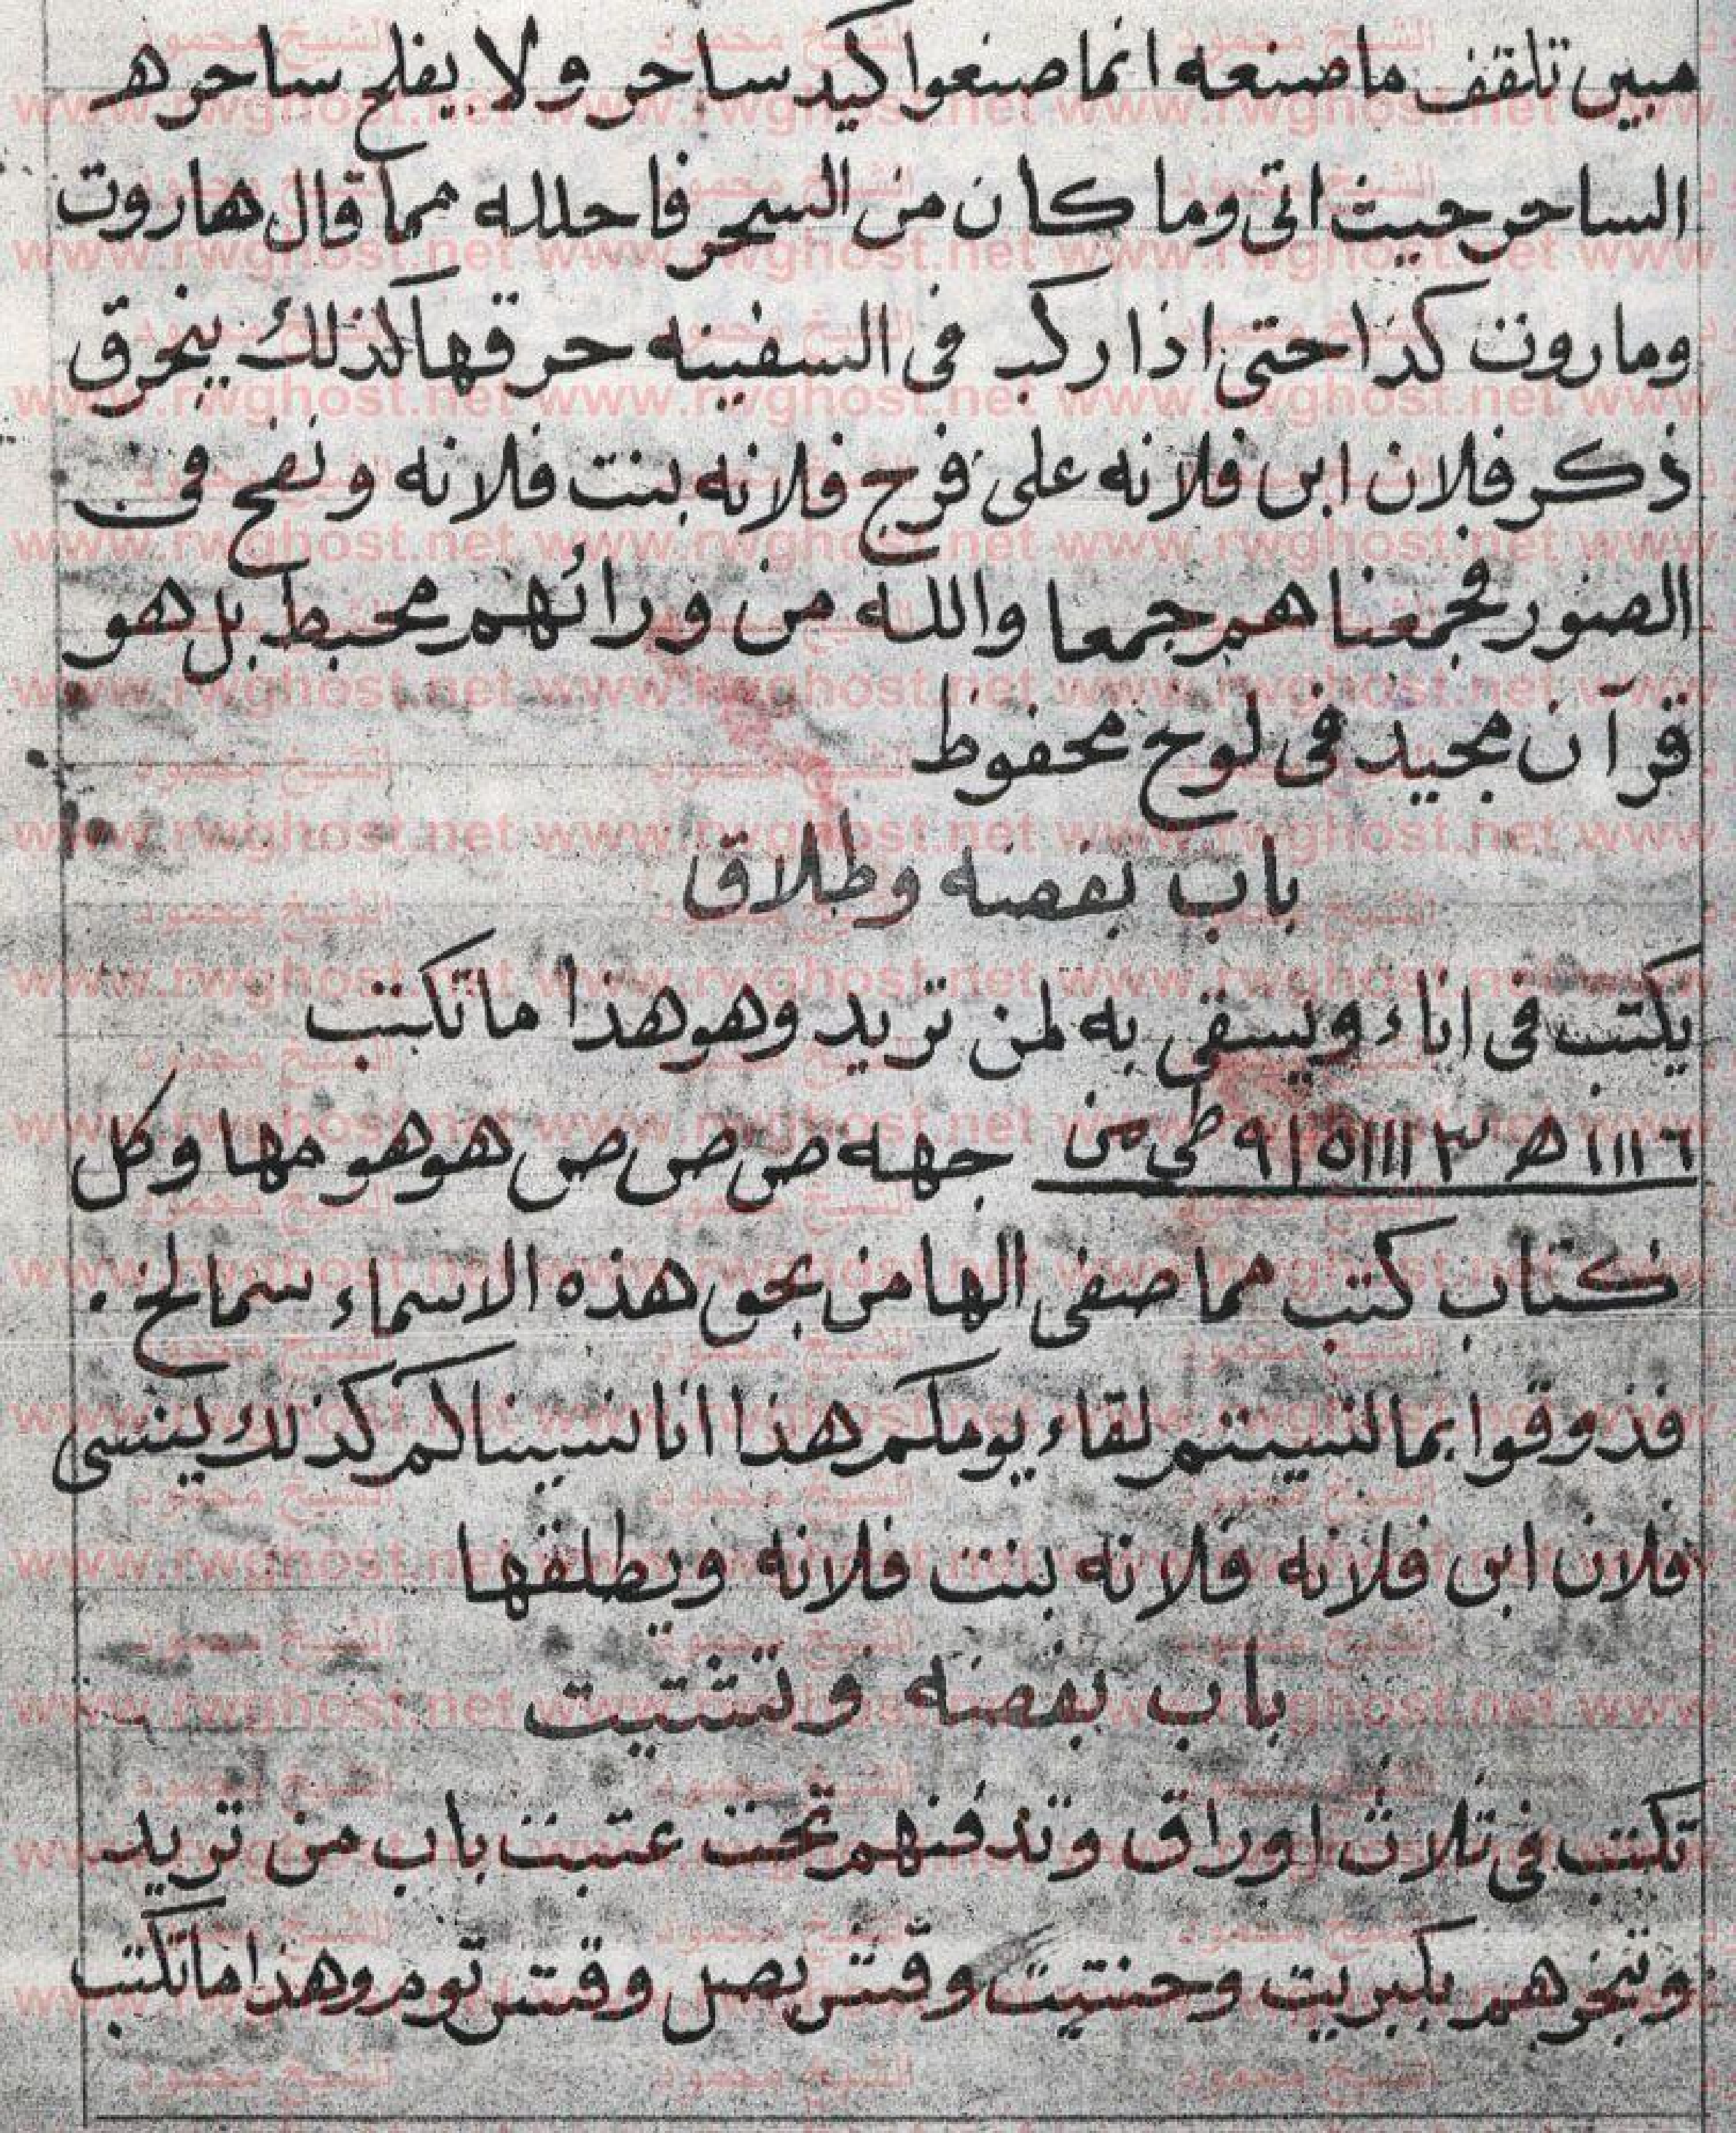 مبين تلقف ما صنعه انما صنعوا كيد ساحر ولا يفلح ساحر هـ
الساحر حيث اتى وما كان من السحر فاحلله مما قال هاروت
وماروت كذا حتى اذا ركب فى السفينه حرقها كذلك ينحرق
ذكر فلان ابن فلانه على فرج فلانه بنت فلانه ونفخ فى
الصور فجمعناهم جمعا والله من ورائهم محيط بل هو
قرآن مجيد فى لوح محفوظ
باب بغضه وطلاق
يكتب فى اناء ويسقى به لمن تريد وهو هذا ما تكتب
٩١٥١١١١٣ هـ ١١١٦ طى من جهه ص ص ص ص هو هو مها وكل
كتاب كتب مما صفى الها من بحق هذه الاسماء سمالخ .
فذوقوا بما نسيتم لقاء يومكم هذا انا نسيناكم كذلك ينسى
فلان ابن فلانه فلانه بنت فلانه ويطلقها
باب بغضه وتشتيت
تكتب فى ثلاث اوراق وتدفنهم تحت عتبت باب من تريد
وتبخرهم بكبريت وحنتيت وقشر بصل وقشر توم وهذا ما تكتب
www.rwghost.net
الشيخ محمود